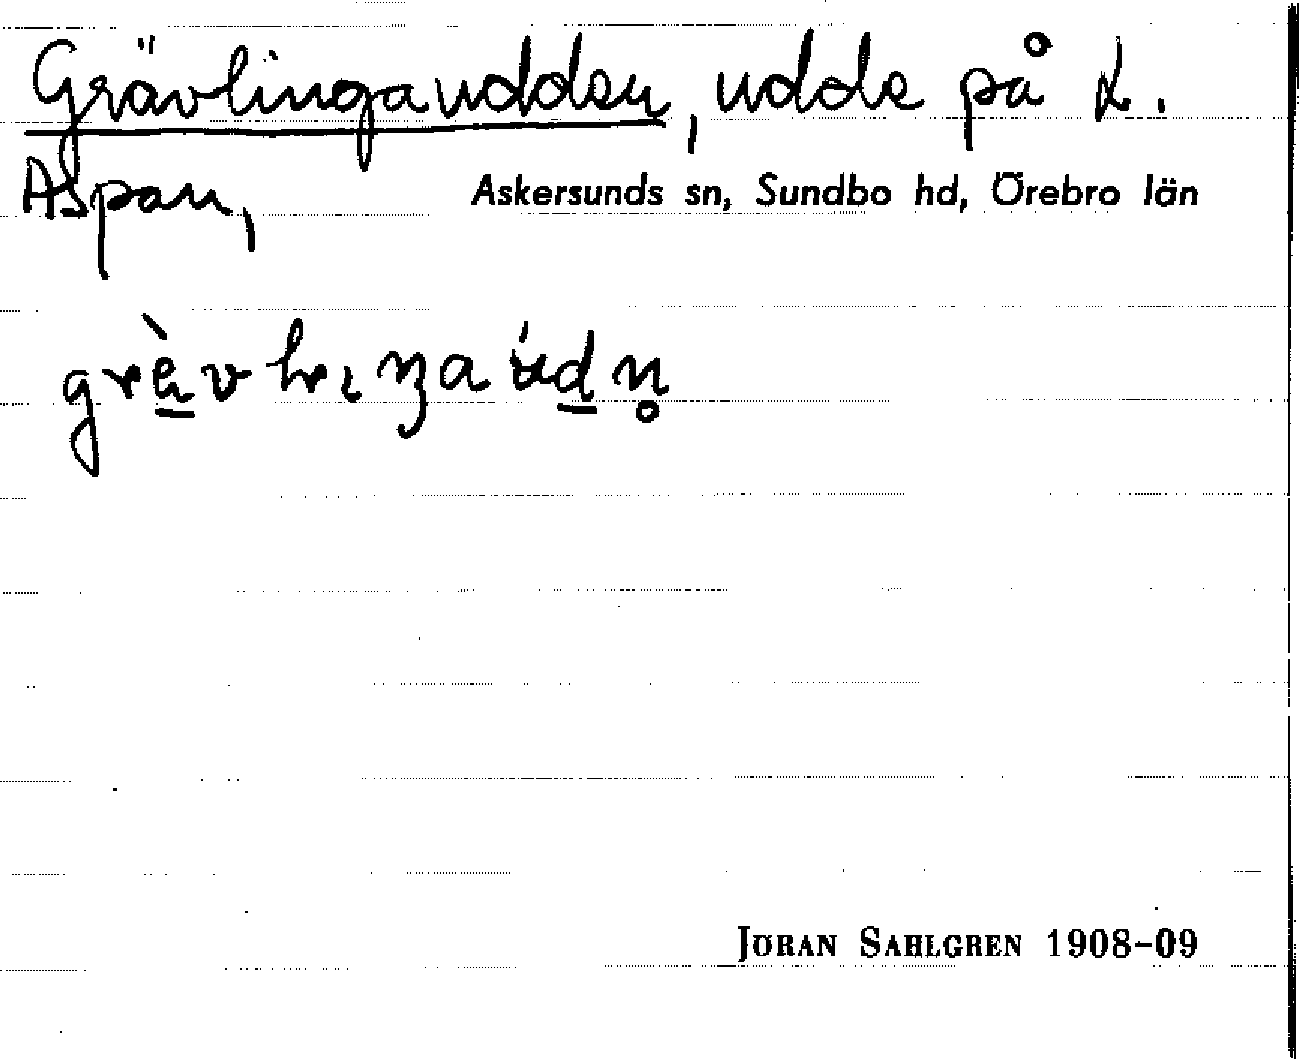 Grävlingaudden, udde på L.
Aspan, Askersunds sn, Sundbo hd, Örebro län
JÖRAN SAHLGREN 1908–09